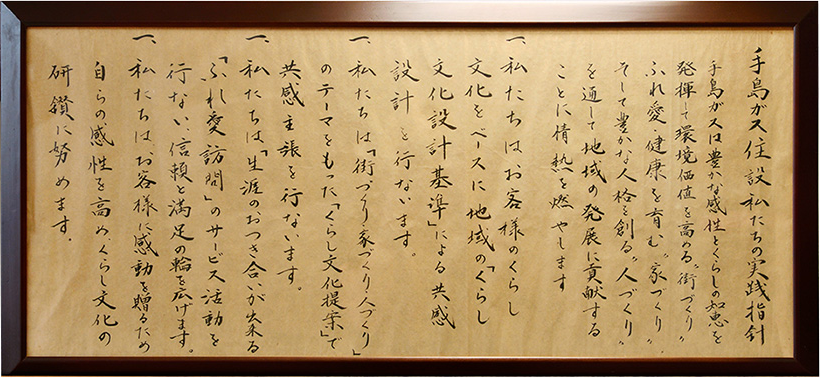 手島ガス住設私たちの実践指針
手島ガスは豊かな感性とくらしの知恵を
発揮して環境価値を高める〝街づくり〟
ふれ愛・健康を育む〝家づくり〟
そして豊かな人格を創る〝人づくり〟
を通して地域の発展に貢献する
ことに情熱を燃やします
一、私たちは、お客様のくらし
文化をベースに地域の「くらし
文化設計基準」による共感
設計を行ないます。
一、私たちは「街づくり家づくり人づくり」
のテーマをもった「くらし文化提案」で
共感主張を行ないます。
一、私たちは「生涯のおつき合いが出来る
「ふれ愛訪問」のサービス活動を
行ない、信頼と満足の輪を広げます。
一、私たちは、お客様に感動を贈るため
自らの感性を高めくらし文化の
研鑽に努めます.